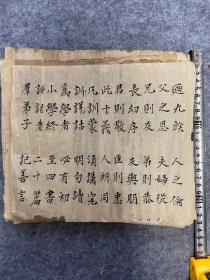 九族人之倫
父之恩夫婦從
兄則友弟則恭
長幼序友與朋
君則敬臣則忠
此十義人所同
凡訓蒙須講究
訓詳詁明句讀
為學者必有初
小學終至四書
論語者二十篇
羣弟子記善言